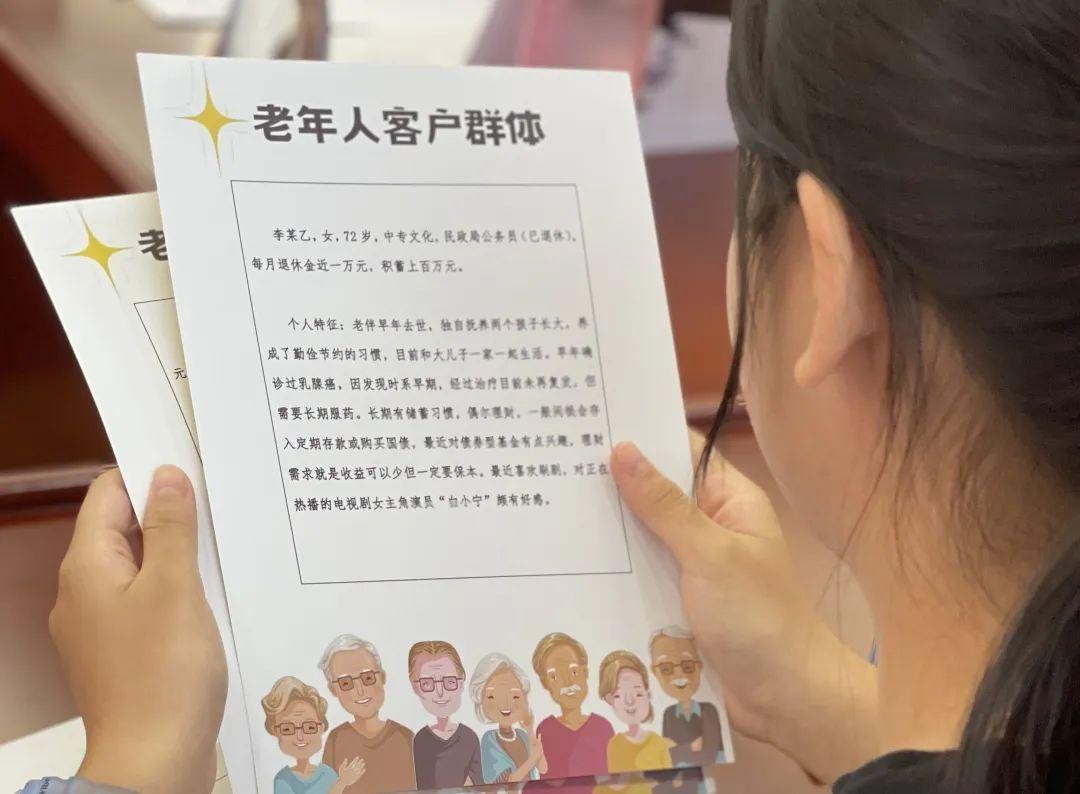 老年人客户群体
李某乙，女，72岁，中专文化，民政局公务员（已退休），
每月退休金近一万元，积蓄上百万元。
个人特征：老伴早年去世，独自抚养两个孩子长大，养
成了勤俭节约的习惯，目前和大儿子一家一起生活。早年确
诊过乳腺癌，因发现时系早期，经过治疗目前未再复发，但
需要长期服药。长期有储蓄习惯，偶尔理财，一般闲钱会存
入定期存款或购买国债，最近对债券型基金有点兴趣，理财
需求就是收益可以少但一定要保本。最近喜欢刷剧，对正在
热播的电视剧女主角演员“白小宁”颇有好感。
老
元